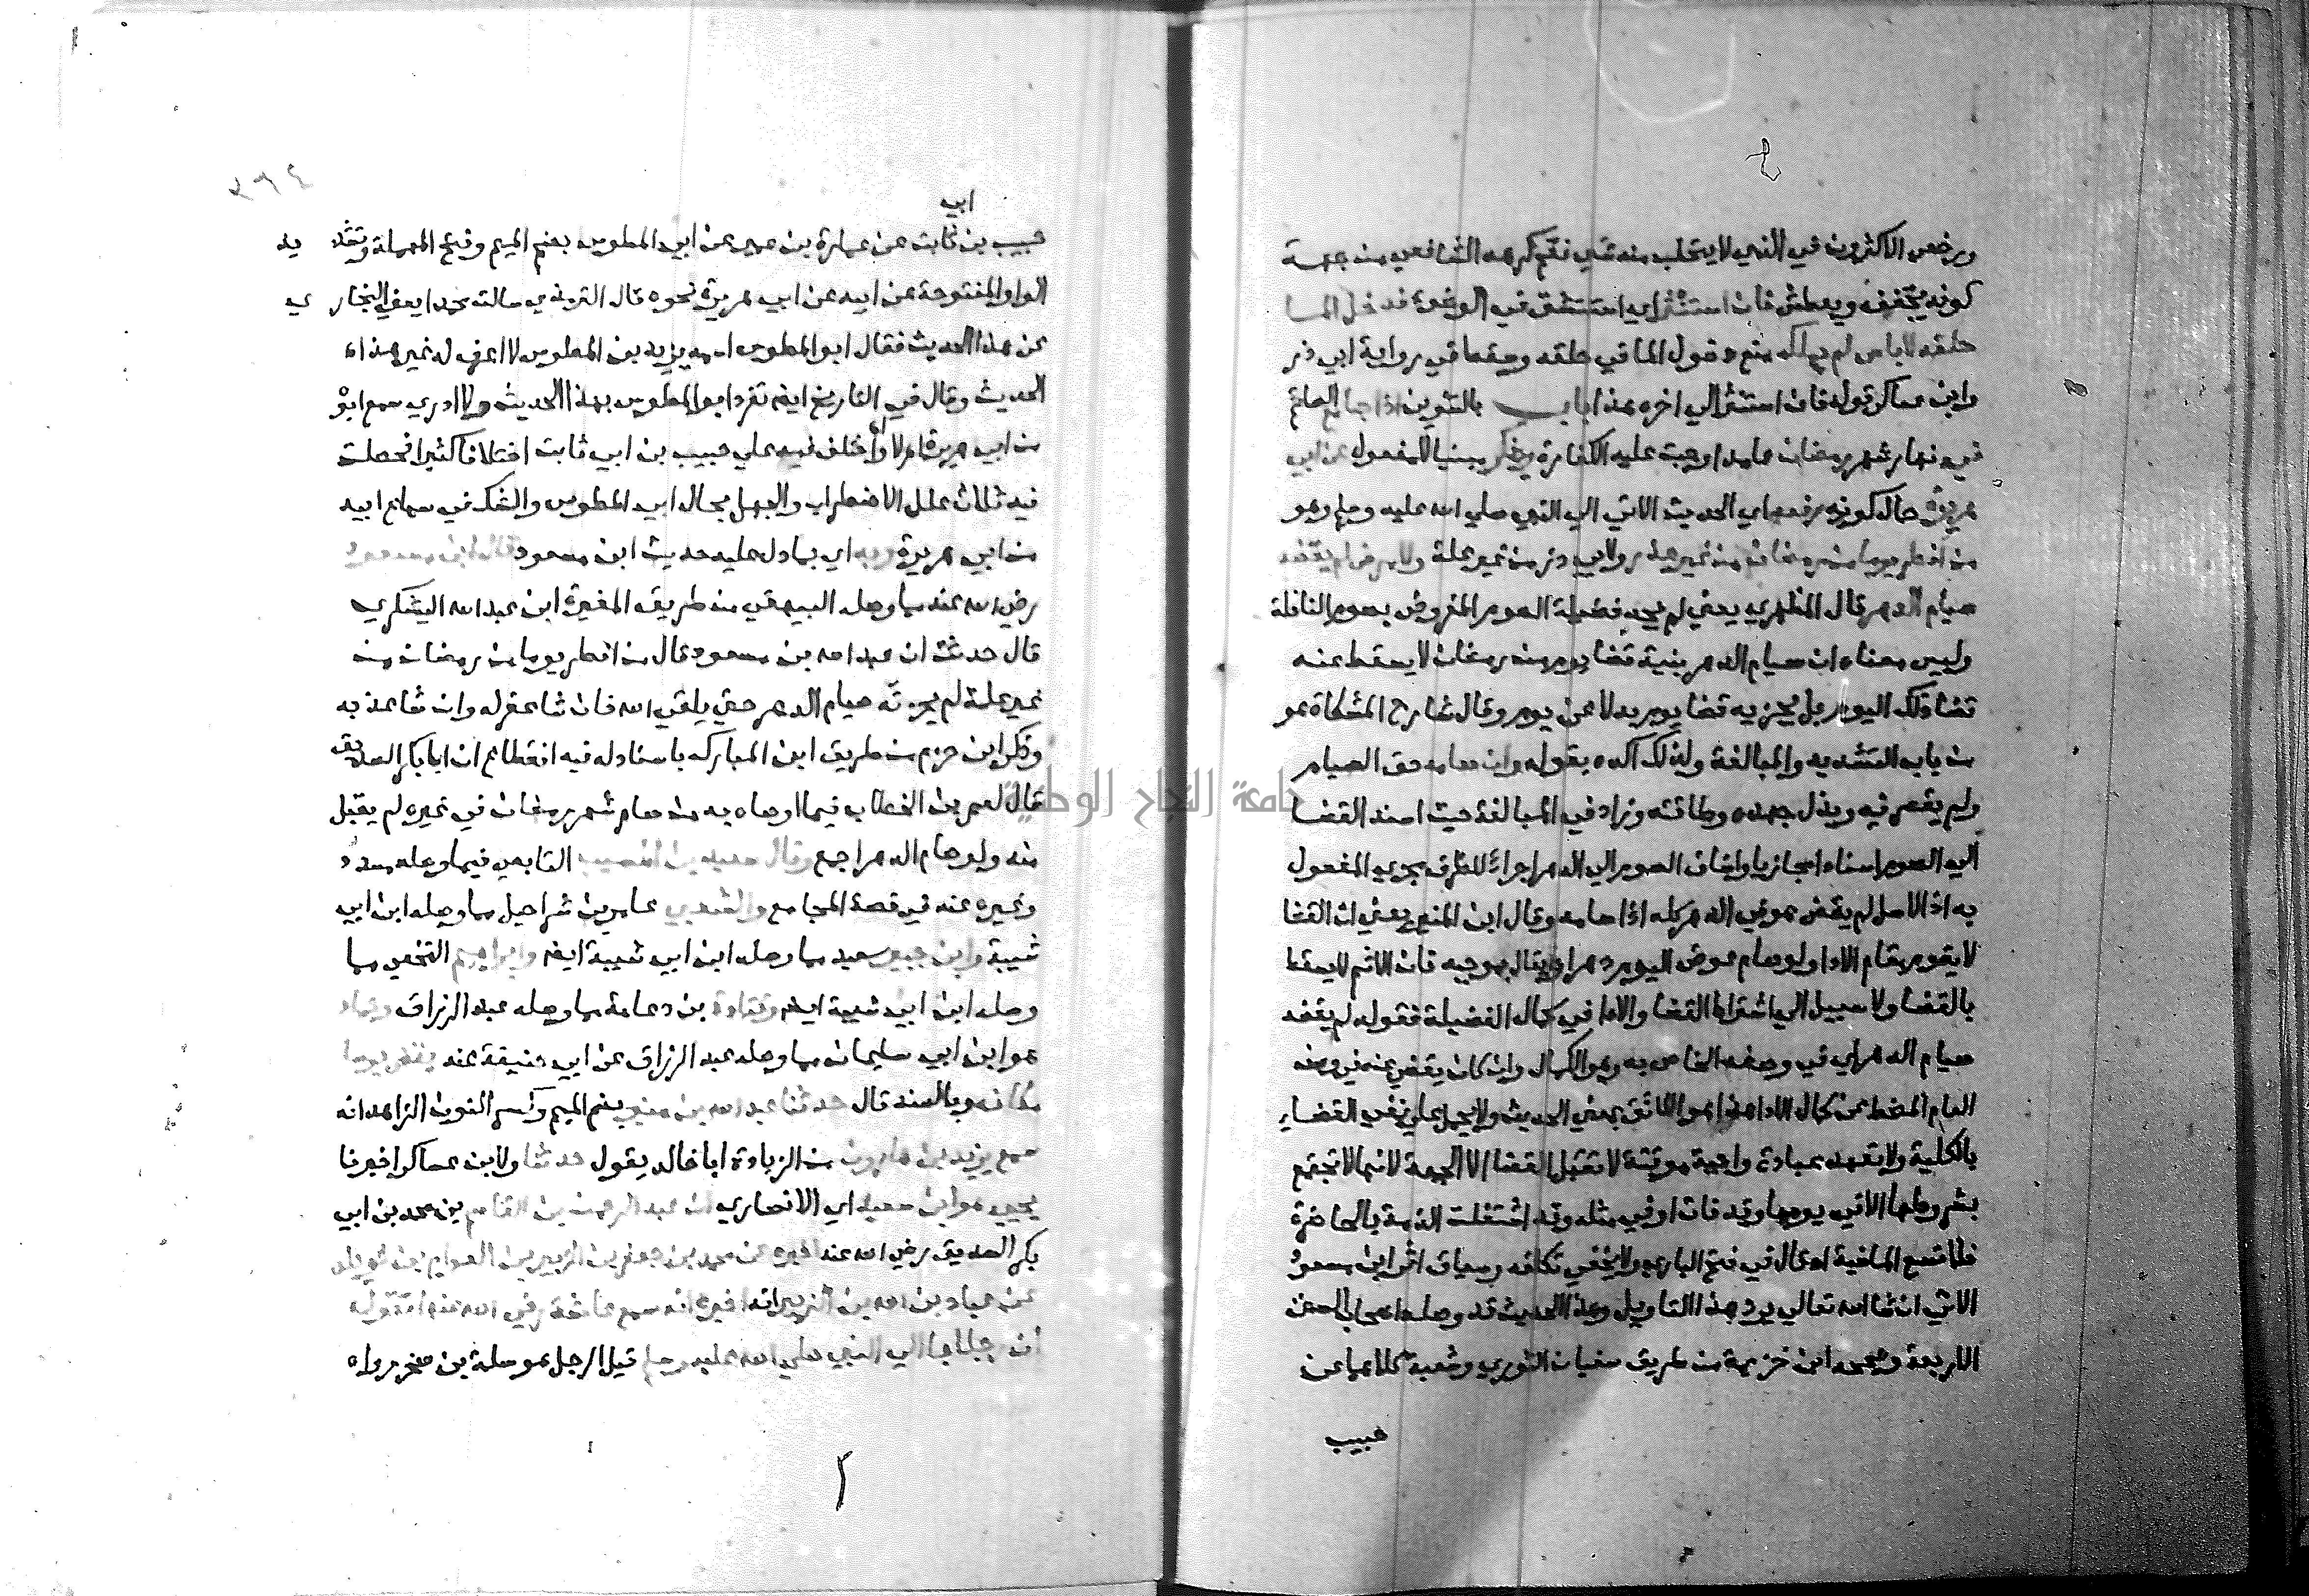 ورخص الاكثرون في الذي لا يتحلب منه شي نعم كرهه الشافعي من جهة
كونه يجفف ويعطش فان استنثر اي استنشق في الوضوء فدخل الما
حلقه لا باس لم يملك منع دخول الما في حلقه وسقط في رواية ابي ذر
وابن عساكر قوله فان استنثر الى اخره هذا باب بالتنوين اذا جامع الصائم
في نهار شهر رمضان عامدا وجبت عليه الكفارة ويذكر مبنيا للمفعول عن ابي
هريرة حال كونه رفعه اي الحديث الاتي الى النبي صلى الله عليه وسلم وهو
من افطر يوما من رمضان من غير عذر ولابي ذر من غير علة ولا مرض لم يقضه
صيام الدهر قال المظهري يعني لم يجد فضيلة الصوم المفروض بصوم النافلة
وليس معناه ان صيام الدهر بنية قضا يوم من رمضان لا يسقط عنه
قضا ذلك اليوم بل يجزيه قضا يوم بدلا عن يوم وقال شارح المشكاة هو
من باب التشديد والمبالغة ولذلك اكده بقوله وان صامه حق الصيام
ولم يقصر فيه وبذل جهده وطاقته وزاد في المبالغة حيث اسند القضا
اليه الصوم اسنادا مجازيا واضاف الصوم الى الدهر اجراء للظرف مجرى المفعول
به اذ الاصل لم يقض هو في الدهر كله اذا صامه وقال ابن المنير يعني ان القضا
لا يقوم مقام الادا ولو صام عوض اليوم دهرا ويقال بموجبه فان الاثم لا يسقط
بالقضا ولا سبيل الى اشتراك القضا والادا في كمال الفضيلة فقوله لم يقضه
صيام الدهر اي في وصفه الخاص به وهو الكمال وان كان يقضي عنه في وصفه
العام المنحط عن كمال الادا هذا هو اللائق بمعنى الحديث ولا يحمل على نفي القضاء
بالكلية ولا تعهد عبادة واجبة موقتة لا تقبل القضا الا الجمعة لانها لا تجتمع
بشروطها الا في يومها وقد فات او في مثله وقد اشتغلت الذمة بالحاضرة
فلا تسع الماضية اه قال في فتح الباري ولا يخفى تكلفه وسياق اثر ابن مسعود
الاتي ان شا الله تعالى يرد هذا التاويل وهذا الحديث قد وصله اصحاب السنن
الاربعة وصححه ابن خزيمة من طريق سفيان الثوري وشعبة كلاهما عن
حبيب
٣٦٤
حبيب بن ابي ثابت عن عمارة بن عمير عن ابي المطوس بضم الميم وفتح المهملة وتشديد
الواو المفتوحة عن ابيه عن ابي هريرة نحوه قال الترمذي سالت محمدا يعني البخاري
عن هذا الحديث فقال ابو المطوس اسمه يزيد بن المطوس لا اعرف له غير هذا
الحديث وقال في التاريخ ايضا تفرد ابو المطوس بهذا الحديث ولا ادري سمع ابوه
من ابي هريرة ام لا واختلف فيه على حبيب بن ابي ثابت اختلافا كثيرا فحصلت
فيه ثلاث علل الاضطراب والجهل بحال ابي المطوس والشك في سماع ابيه
من ابي هريرة وبه اي بما دل عليه حديث ابن مسعود قال ابن مسعود
رضي الله عنه مما وصله البيهقي من طريق المغيرة ابن عبد الله اليشكري
قال حدثت ان عبد الله بن مسعود قال من افطر يوما من رمضان من
غير علة لم يجزئه صيام الدهر حتى يلقى الله فان شا غفر له وان شا عذبه
وذكر ابن حزم من طريق ابن المبارك باسناد له فيه انقطاع ان ابا بكر الصديق
قال لعمر بن الخطاب فيما اوصاه به من صام شهر رمضان في غيره لم يقبل
منه ولو صام الدهر اجمع وقال سعيد بن المسيب التابعي فيما وصله مسدد
وغيره عنه في قصة المجامع والشعبي عامر بن شراحيل مما وصله ابن ابي
شيبة وابن جبير سعيد مما وصله ابن ابي شيبة ايضا وابراهيم النخعي مما
وصله ابن ابي شيبة ايضا وقتادة بن دعامة مما وصله عبد الرزاق وحماد
هو ابن ابي سليمان مما وصله عبد الرزاق عن ابي حنيفة عنه يقضي يوما
مكانه وبالسند قال حدثنا عبد الله بن منير بضم الميم وكسر النون الزاهد انه
سمع يزيد بن هارون من الزيادة ابا خالد يقول حدثنا ولابن عساكر اخبرنا
يحيى هو ابن سعيد اي الانصاري ان عبد الرحمن بن القاسم بن محمد بن ابي
بكر الصديق رضي الله عنه اخبره عن محمد بن جعفر بن الزبير بن العوام بن خويلد
عن عباد بن عبد الله بن الزبير انه اخبره انه سمع عائشة رضي الله عنها تقول
ان رجلا اتى النبي صلى الله عليه وسلم قيل الرجل هو سلمة بن صخر رواه
جامعة النجاح الوطنية